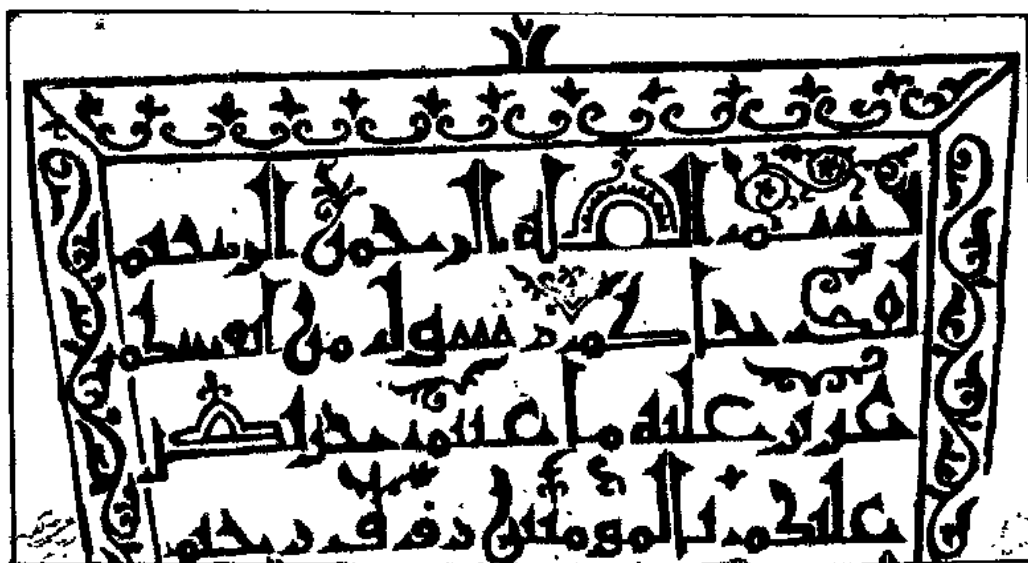 بسم الله الرحمن الرحيم
لقد جاءكم رسول من أنفسكم
عزيز عليه ما عنتم حر
عليكم بالمؤمنين رؤوف رحيم